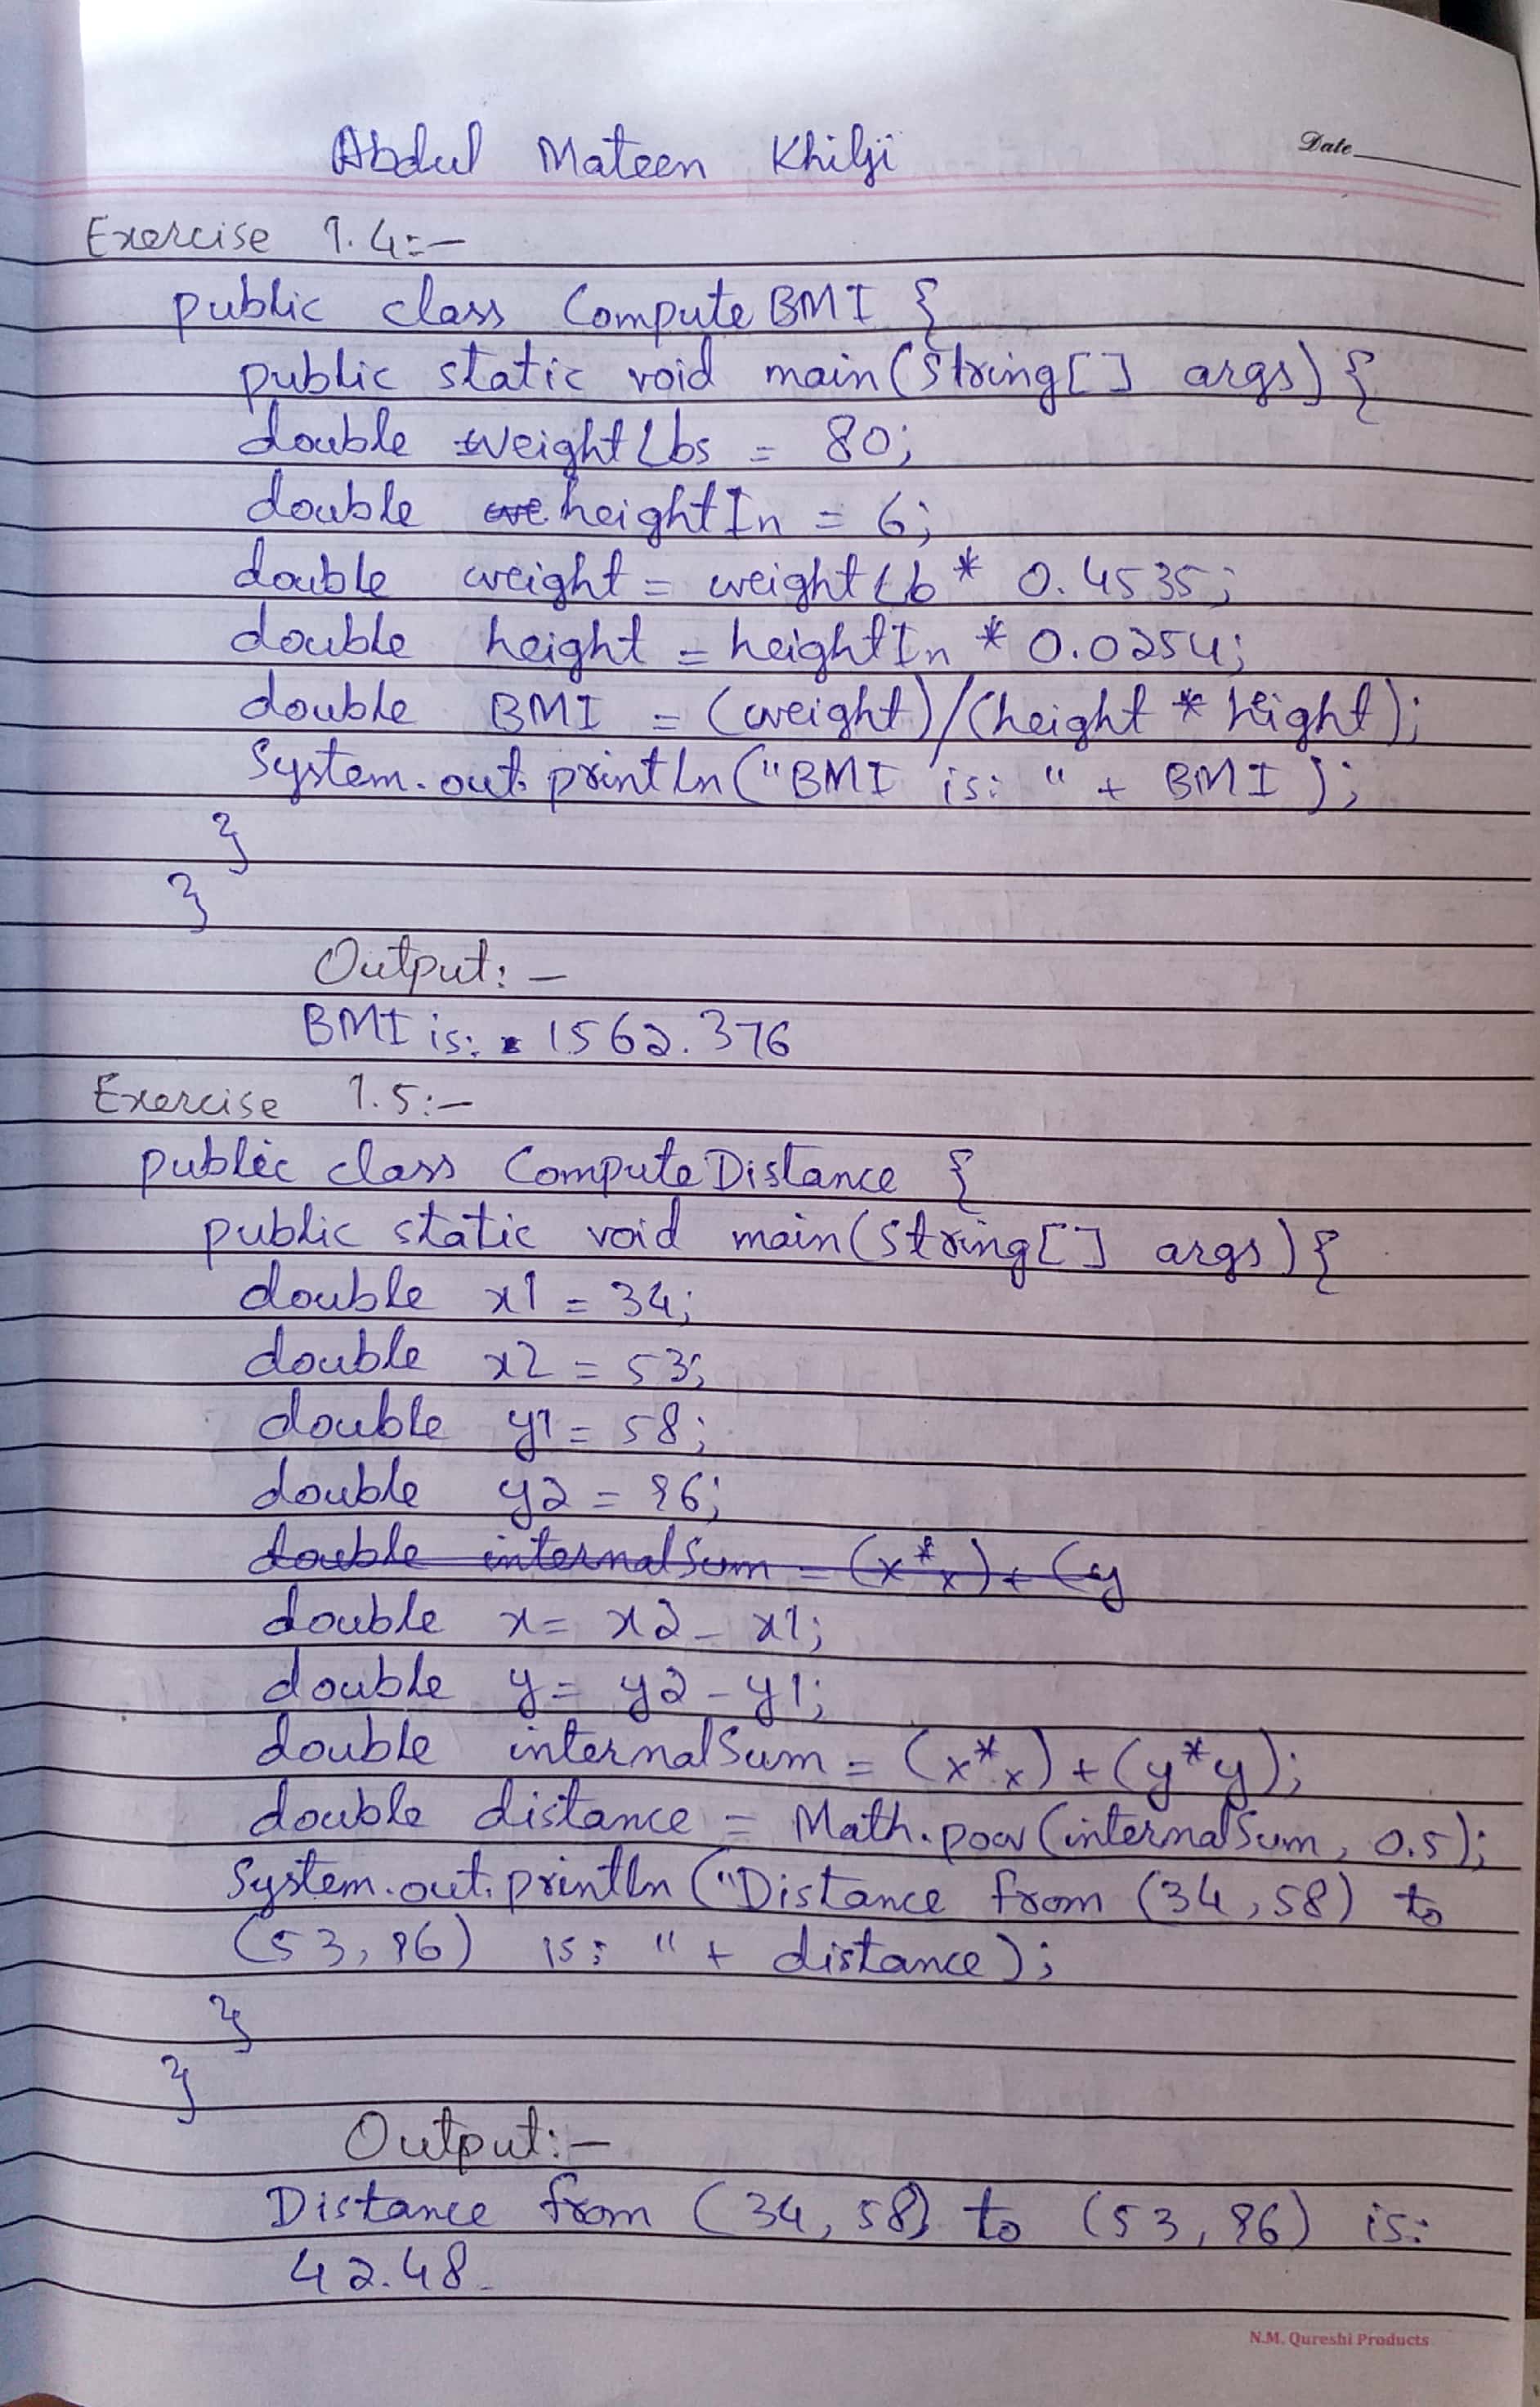 Abdul Mateen Khilji
Date
Exercise 1.4:-
public class ComputeBMI {
public static void main(String[] args) {
double weightLbs = 80;
double heightIn = 6;
double weight = weightLb * 0.4535;
double height = heightIn * 0.0254;
double BMI = (weight)/(height * hight);
System.out.println("BMI is: " + BMI);
}
}
Output:-
BMI is: 1562.376
Exercise 1.5:-
public class ComputeDistance {
public static void main(String[] args) {
double x1 = 34;
double x2 = 53;
double y1 = 58;
double y2 = 96;
double internalSum = (x*x)+(y
double x = x2 - x1;
double y = y2 - y1;
double internalSum = (x*x)+(y*y);
double distance = Math.pow(internalSum, 0.5);
System.out.println("Distance from (34,58) to
(53,96) is: " + distance);
}
}
Output:-
Distance from (34,58) to (53,96) is:
42.48
N.M. Qureshi Products